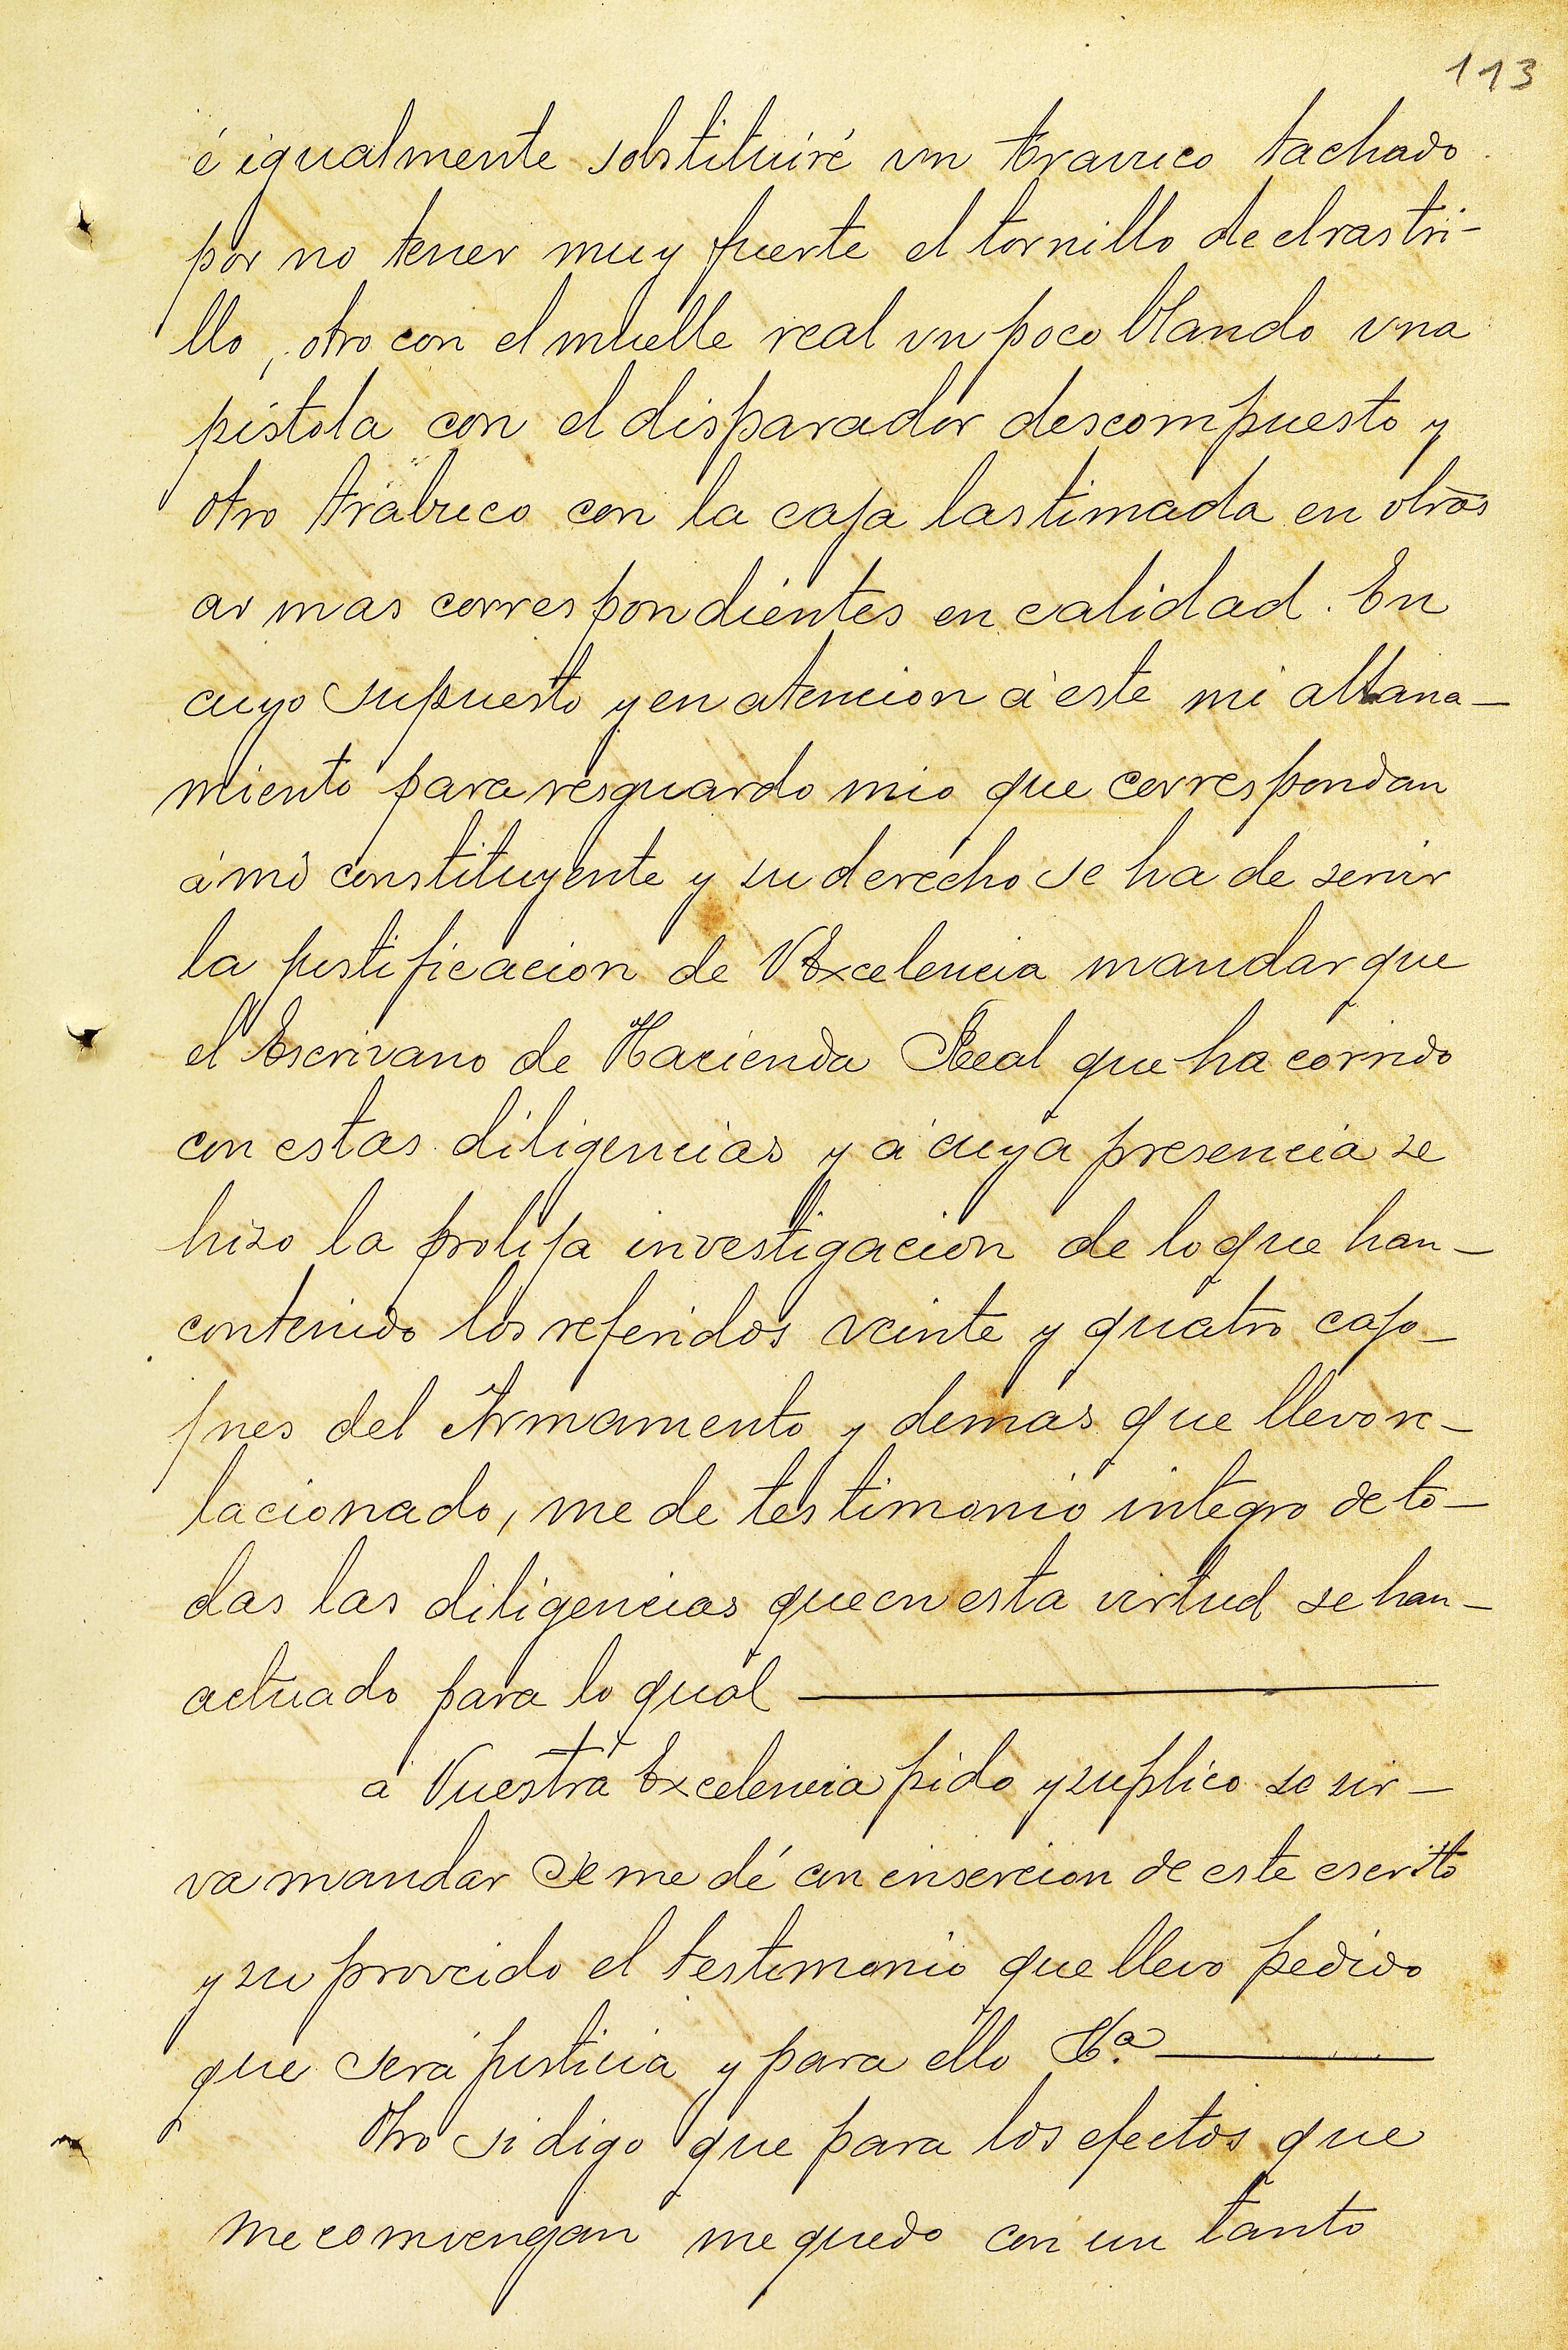 113
é igualmente sobstituiré vn travuco tachado
por no tener muy fuerte el tornillo de el rastri-
llo, otro con el muelle real vn poco blando vna
pistola con el disparador descompuesto y
otro trabuco con la caja lastimada en otras
armas correspondientes en calidad. En
cuyo supuesto y en atencion á este mi allana-
miento para resguardo mio que correspondan
á mi constituyente y su derecho se ha de servir
la justificacion de VExcelencia mandar que
el Escrivano de Hacienda Real que ha corrido
con estas diligencias y á cuya presencia se
hizo la prolija investigacion de lo que han-
contenido los referidos veinte y quatro cajo-
nes del Armamento y demas que llevo re-
lacionado, me de testimonio integro de to-
das las diligencias que en esta virtud se han-
actuado para lo qual
á Vuestra Excelencia pido y suplico se sir-
va mandar se me dé con insercion de este escrito
y su proveido el testimonio que llevo pedido
que será justicia y para ello
Otro si digo que para los efectos que
me comvengan me quedo con un tanto